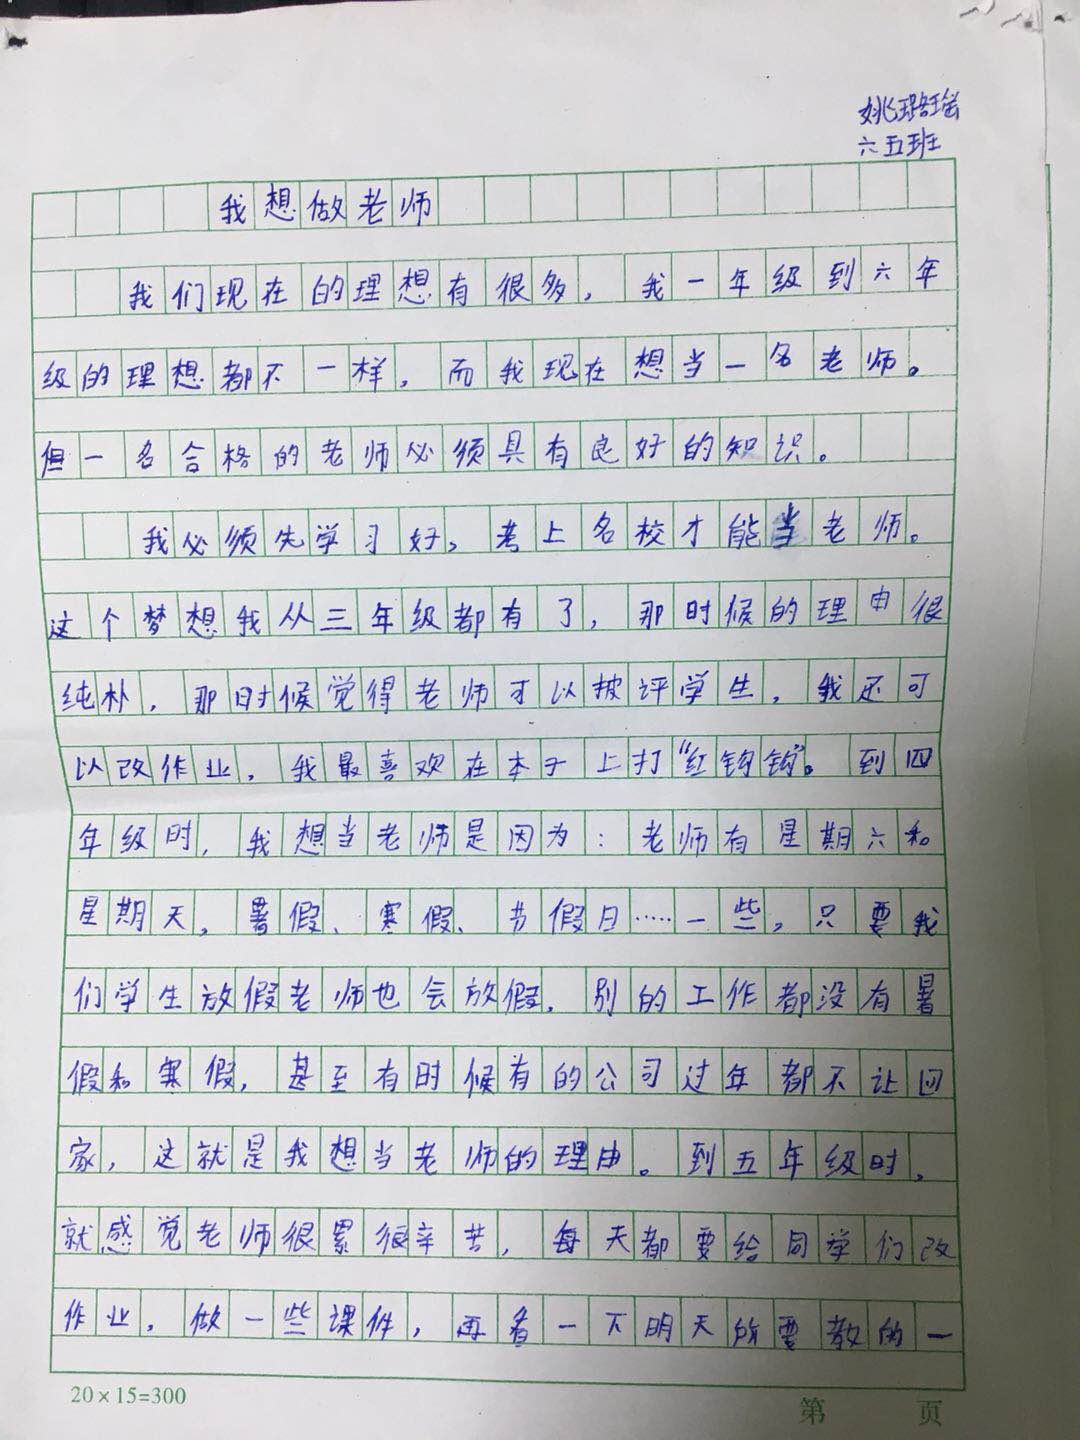 姚璐瑶
六五班
我想做老师
我们现在的理想有很多，我一年级到六年
级的理想都不一样，而我现在想当一名老师。
但一名合格的老师必须具有良好的知识。
我必须先学习好，考上名校才能当老师。
这个梦想我从三年级都有了，那时候的理由很
纯朴，那时候觉得老师可以披评学生，我还可
以改作业，我最喜欢在本子上打“红钩钩”。到四
年级时，我想当老师是因为：老师有星期六和
星期天，暑假、寒假、节假日……一些，只要我
们学生放假老师也会放假，别的工作都没有暑
假和寒假，甚至有时候有的公司过年都不让回
家，这就是我想当老师的理由。到五年级时，
就感觉老师很累很辛苦，每天都要给同学们改
作业，做一些课件，再看一下明天所要教的一
20×15=300
第 页